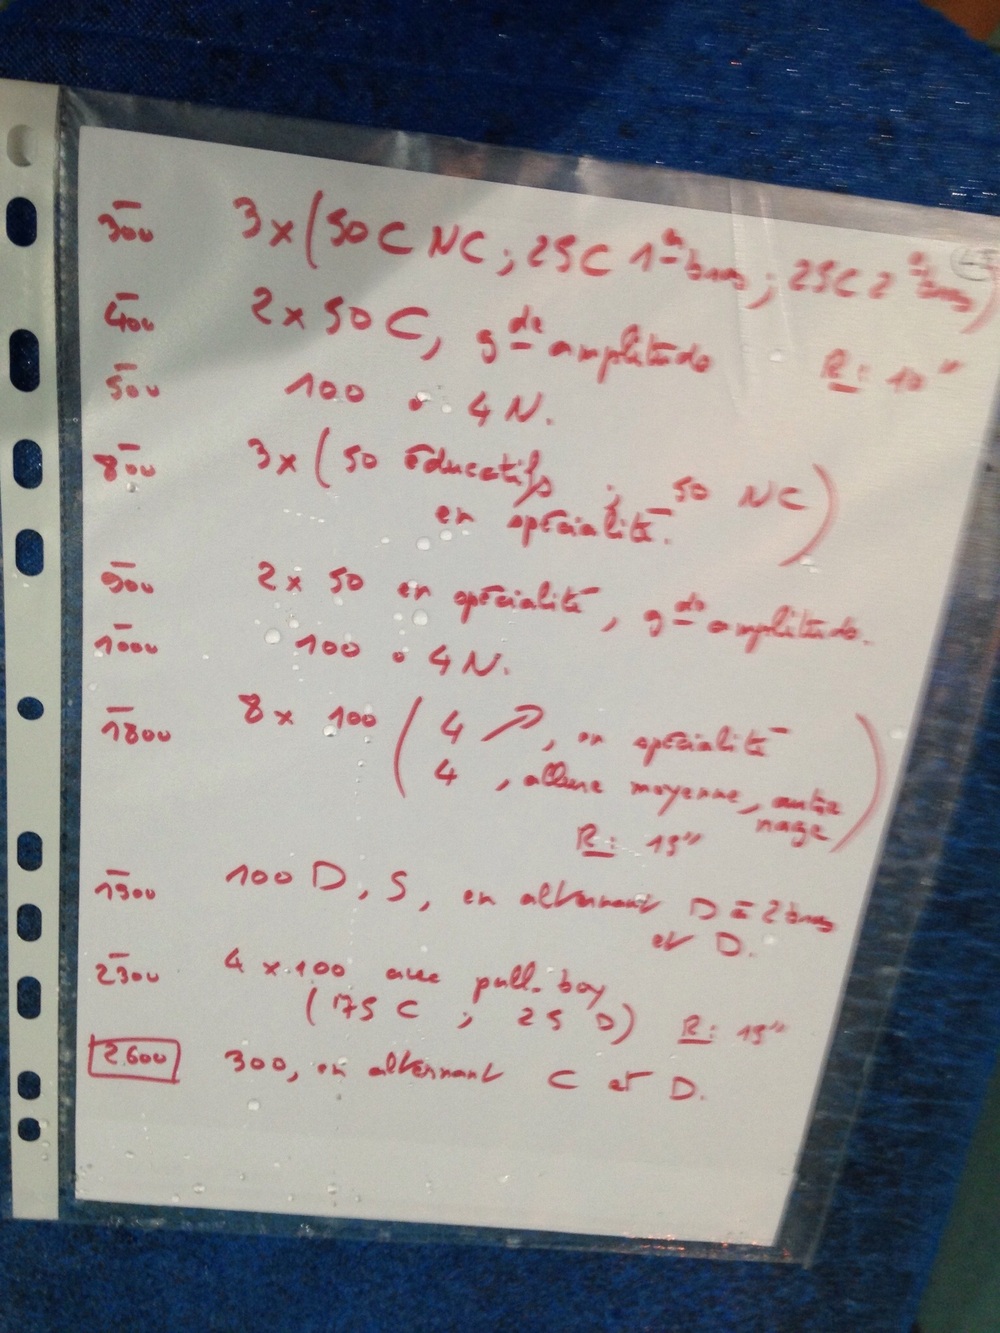 300 3x (50C NC ; 25C 1 bras ; 25C 2 bras)
400 2 x 50 C, gde amplitude R : 10"
500 100 • 4N.
800 3x (50 éducatifs ; 50 NC)
en spécialité.
900 2 x 50 en spécialité, gde amplitude.
1000 100 • 4N.
1800 8 x 100 ( 4 ↗, en spécialité
4 , allure moyenne, autre
nage)
R : 15"
1900 100 D, S, en alternant D à 2 bras
et D.
2300 4 x 100 avec pull-boy
(75 C ; 25 D) R : 15"
2600 300, en alternant C et D.